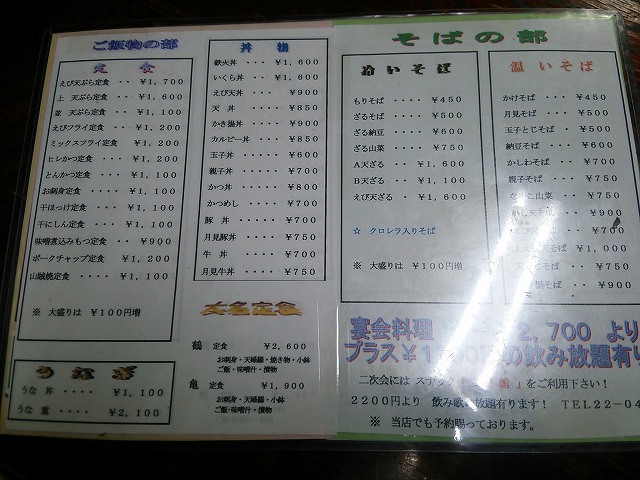 ご飯物の部
定食
えび天ぷら定食 ・・ ￥１,７００
上 天ぷら定食 ・・ ￥１,６００
並 天ぷら定食 ・・ ￥１,１００
えびフライ定食 ・・ ￥１,２００
ミックスフライ定食 ￥１,２００
ヒレかつ定食 ・・・ ￥１,２００
とんかつ定食 ・・・ ￥１,１００
お刺身定食 ・・・・ ￥１,１００
干ほっけ定食 ・・・ ￥１,１００
干にしん定食 ・・・ ￥１,１００
味噌煮込みもつ定食 ・・ ￥９００
ポークチャップ定食 ￥１,２００
山賊焼定食 ・・・・ ￥１,１００
※ 大盛りは ￥１００円増
うなぎ
うな丼 ・・・・ ￥１,１００
うな重 ・・・・ ￥２,１００
丼物
鉄火丼 ・・・ ￥１,６００
いくら丼 ・・ ￥１,６００
えび天丼 ・・・ ￥９００
天 丼 ・・・・ ￥８５０
かき揚丼 ・・・ ￥９００
カルビー丼 ・・ ￥８５０
玉子丼 ・・・・ ￥６００
親子丼 ・・・・ ￥７００
かつ丼 ・・・・ ￥８００
かつめし ・・・ ￥７００
豚 丼 ・・・・ ￥７００
月見豚丼 ・・・ ￥７５０
牛 丼 ・・・・ ￥７００
月見牛丼 ・・・ ￥７５０
大名定食
鶴 定食 ・・・ ￥２,６００
お刺身・天婦羅・焼き物・小鉢
ご飯・味噌汁・漬物
亀 定食 ・・・ ￥１,９００
お刺身・天婦羅・小鉢
ご飯・味噌汁・漬物
そばの部
冷いそば
もりそば ・・・・ ￥４５０
ざるそば ・・・・ ￥５００
ざる納豆 ・・・・ ￥６００
ざる山菜 ・・・・ ￥７５０
Ａ天ざる ・・・ ￥１,６００
Ｂ天ざる ・・・ ￥１,１００
えび天ざる ・・ ￥１,６００
☆ クロレラ入りそば
※ 大盛りは ￥１００円増
温いそば
かけそば ・・・ ￥４５０
月見そば ・・・ ￥５００
玉子とじそば ・ ￥５００
納豆そば ・・・ ￥６００
かしわそば ・・ ￥７００
親子そば ・・・ ￥７５０
山菜 ・・ ￥７５０
￥９００
￥７００
そば ￥１,６００
そば ・・ ￥７５０
そば ・・ ￥９００
宴会料理 ２,７００ より
プラス￥１ の飲み放題有り
二次会には スナック 」をご利用下さい！
２２００円より 飲み歌い放題有ります！ ＴＥＬ２２－０４
※ 当店でも予約賜っております。